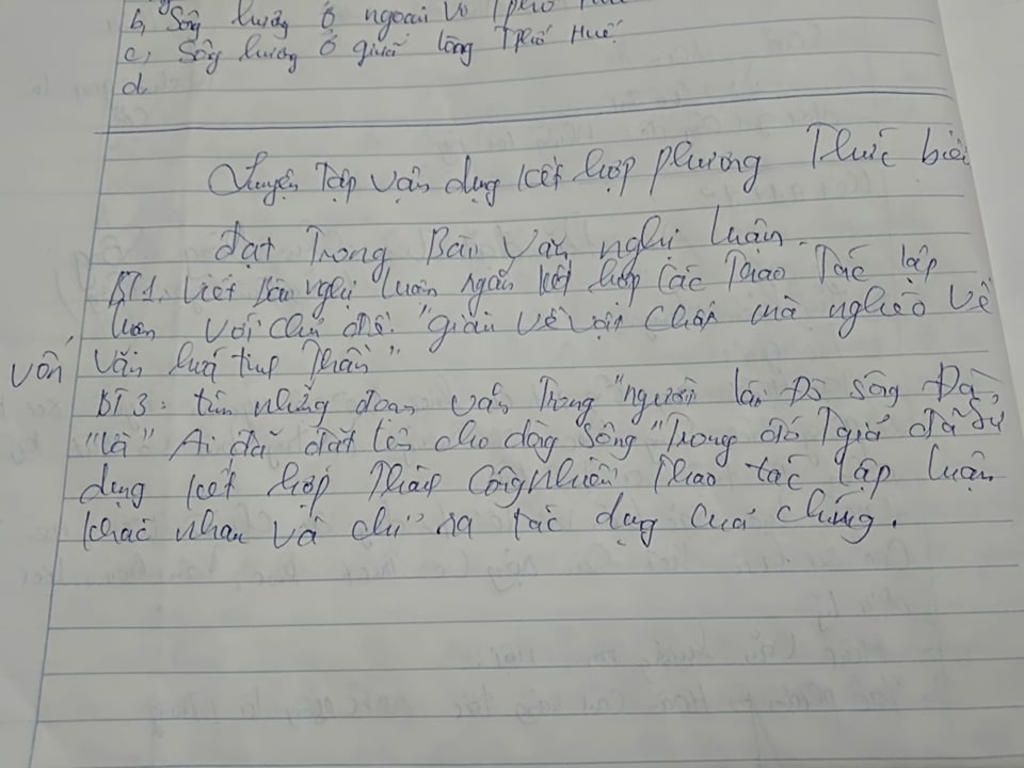 b, Sông hương ở ngoại vi Tphố Huế
c, Sông hương ở giữa lòng Tphố Huế
d.
Luyện Tập vận dụng kết hợp phương Thức biểu
đạt Trong Bài Văn nghị luận.
BT1. Viết Bài nghị luận ngắn kết hợp các Thao Tác lập
luận với chủ đề: "giàu về vật chất mà nghèo về
vốn văn hoá tinh Thần"
BT3: tìm những đoạn văn Trong "người lái Đò sông Đà"
"và" Ai đã đặt tên cho dòng sông "Trong đó Tgiả đã sử
dụng kết hợp Thành công nhiều Thao tác lập luận
khác nhau và chỉ ra tác dụng của chúng.